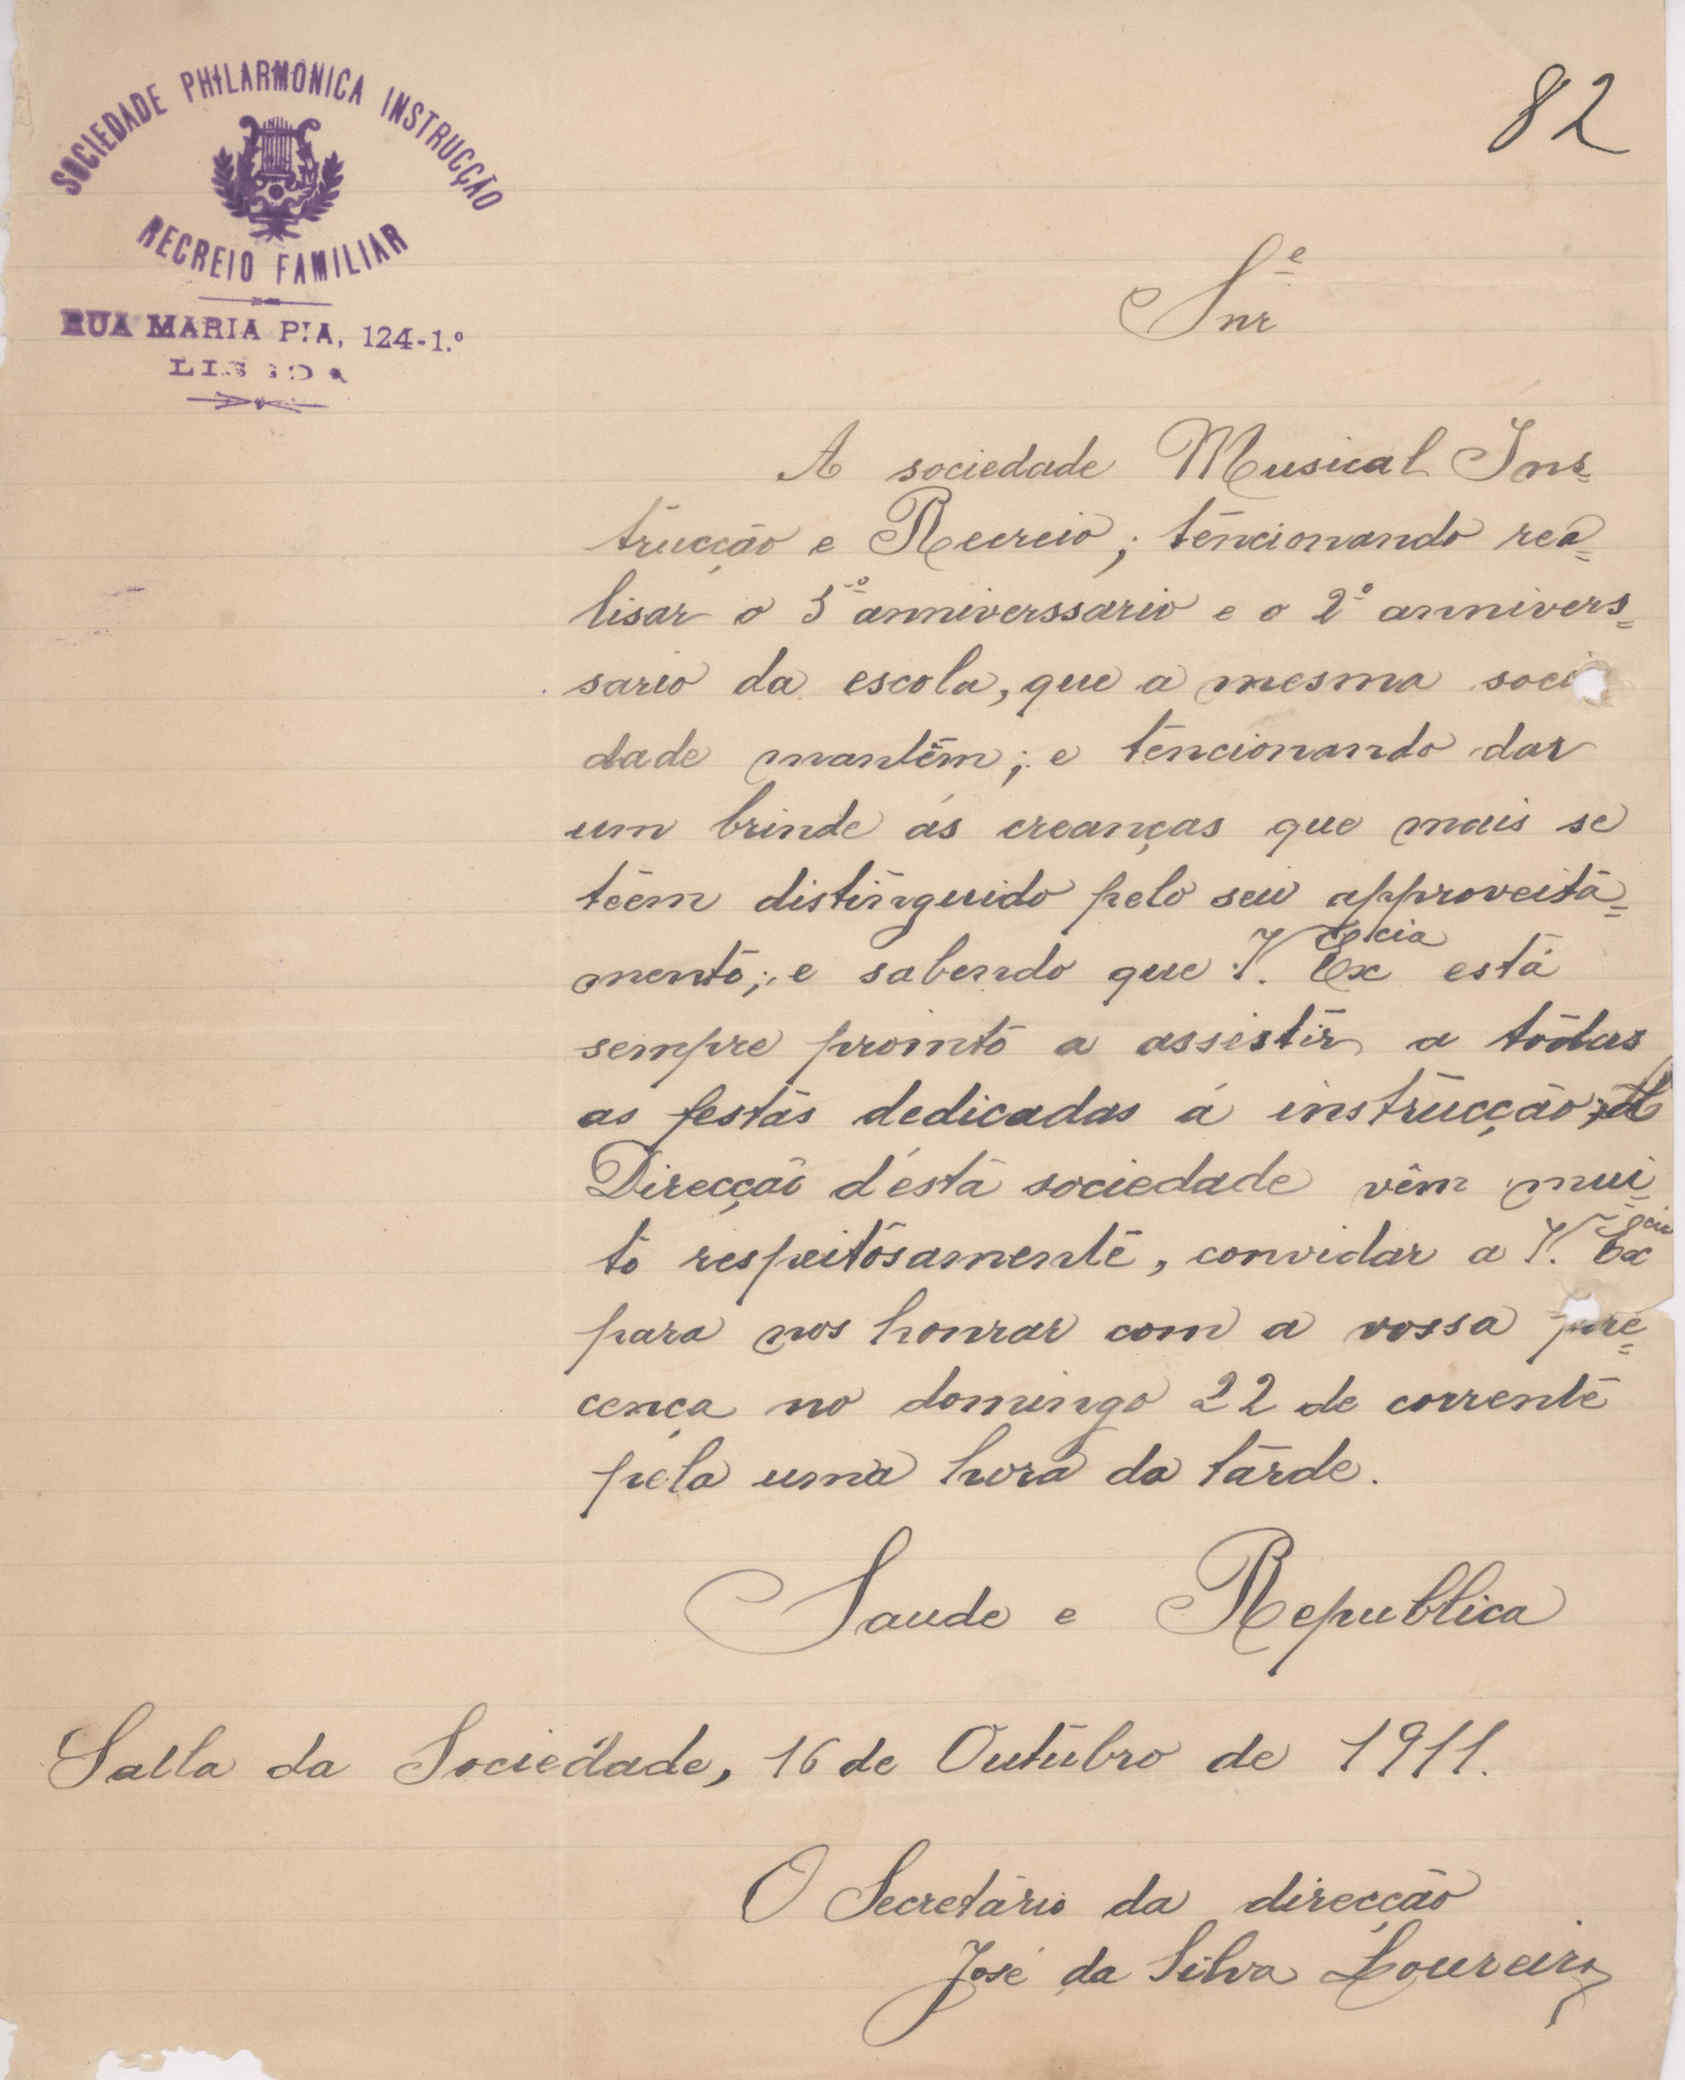 SOCIEDADE PHILARMONICA INSTRUCÇÃO
RECREIO FAMILIAR
RUA MARIA PIA, 124-1.º
LISBOA
82
Snr.e
A sociedade Musical Ins=
trucção e Recreio; tencionando rea=
lisar o 5º anniverssario e o 2º annivers=
sario da escola, que a mesma soci
dade mantêm; e tencionando dar
um brinde ás creanças que mais se
teem distinguido pelo seu approveita=
mento; e sabendo que V. Excia está
sempre prointo a assistir a todas
as festas dedicadas á instrucção; A
Direcção d'esta sociedade vêm mui=
to respeitosamente, convidar a V. Excia
para nos honrar com a vossa pre=
cença no domingo 22 de corrente
pela uma hora da tarde.
Saude e Republica
Salla da Sociedade, 16 de Outubro de 1911.
O Secretário da direcção
José da Silva Loureiro